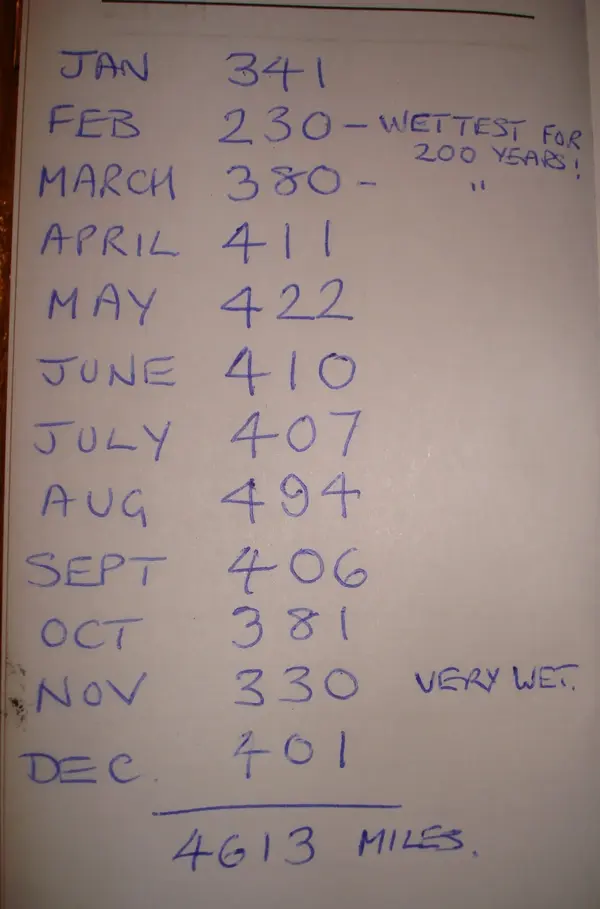 JAN 341
FEB 230 - WETTEST FOR
200 YEARS!
MARCH 380 - "
APRIL 411
MAY 422
JUNE 410
JULY 407
AUG 494
SEPT 406
OCT 381
NOV 330 VERY WET.
DEC. 401
4613 MILES.